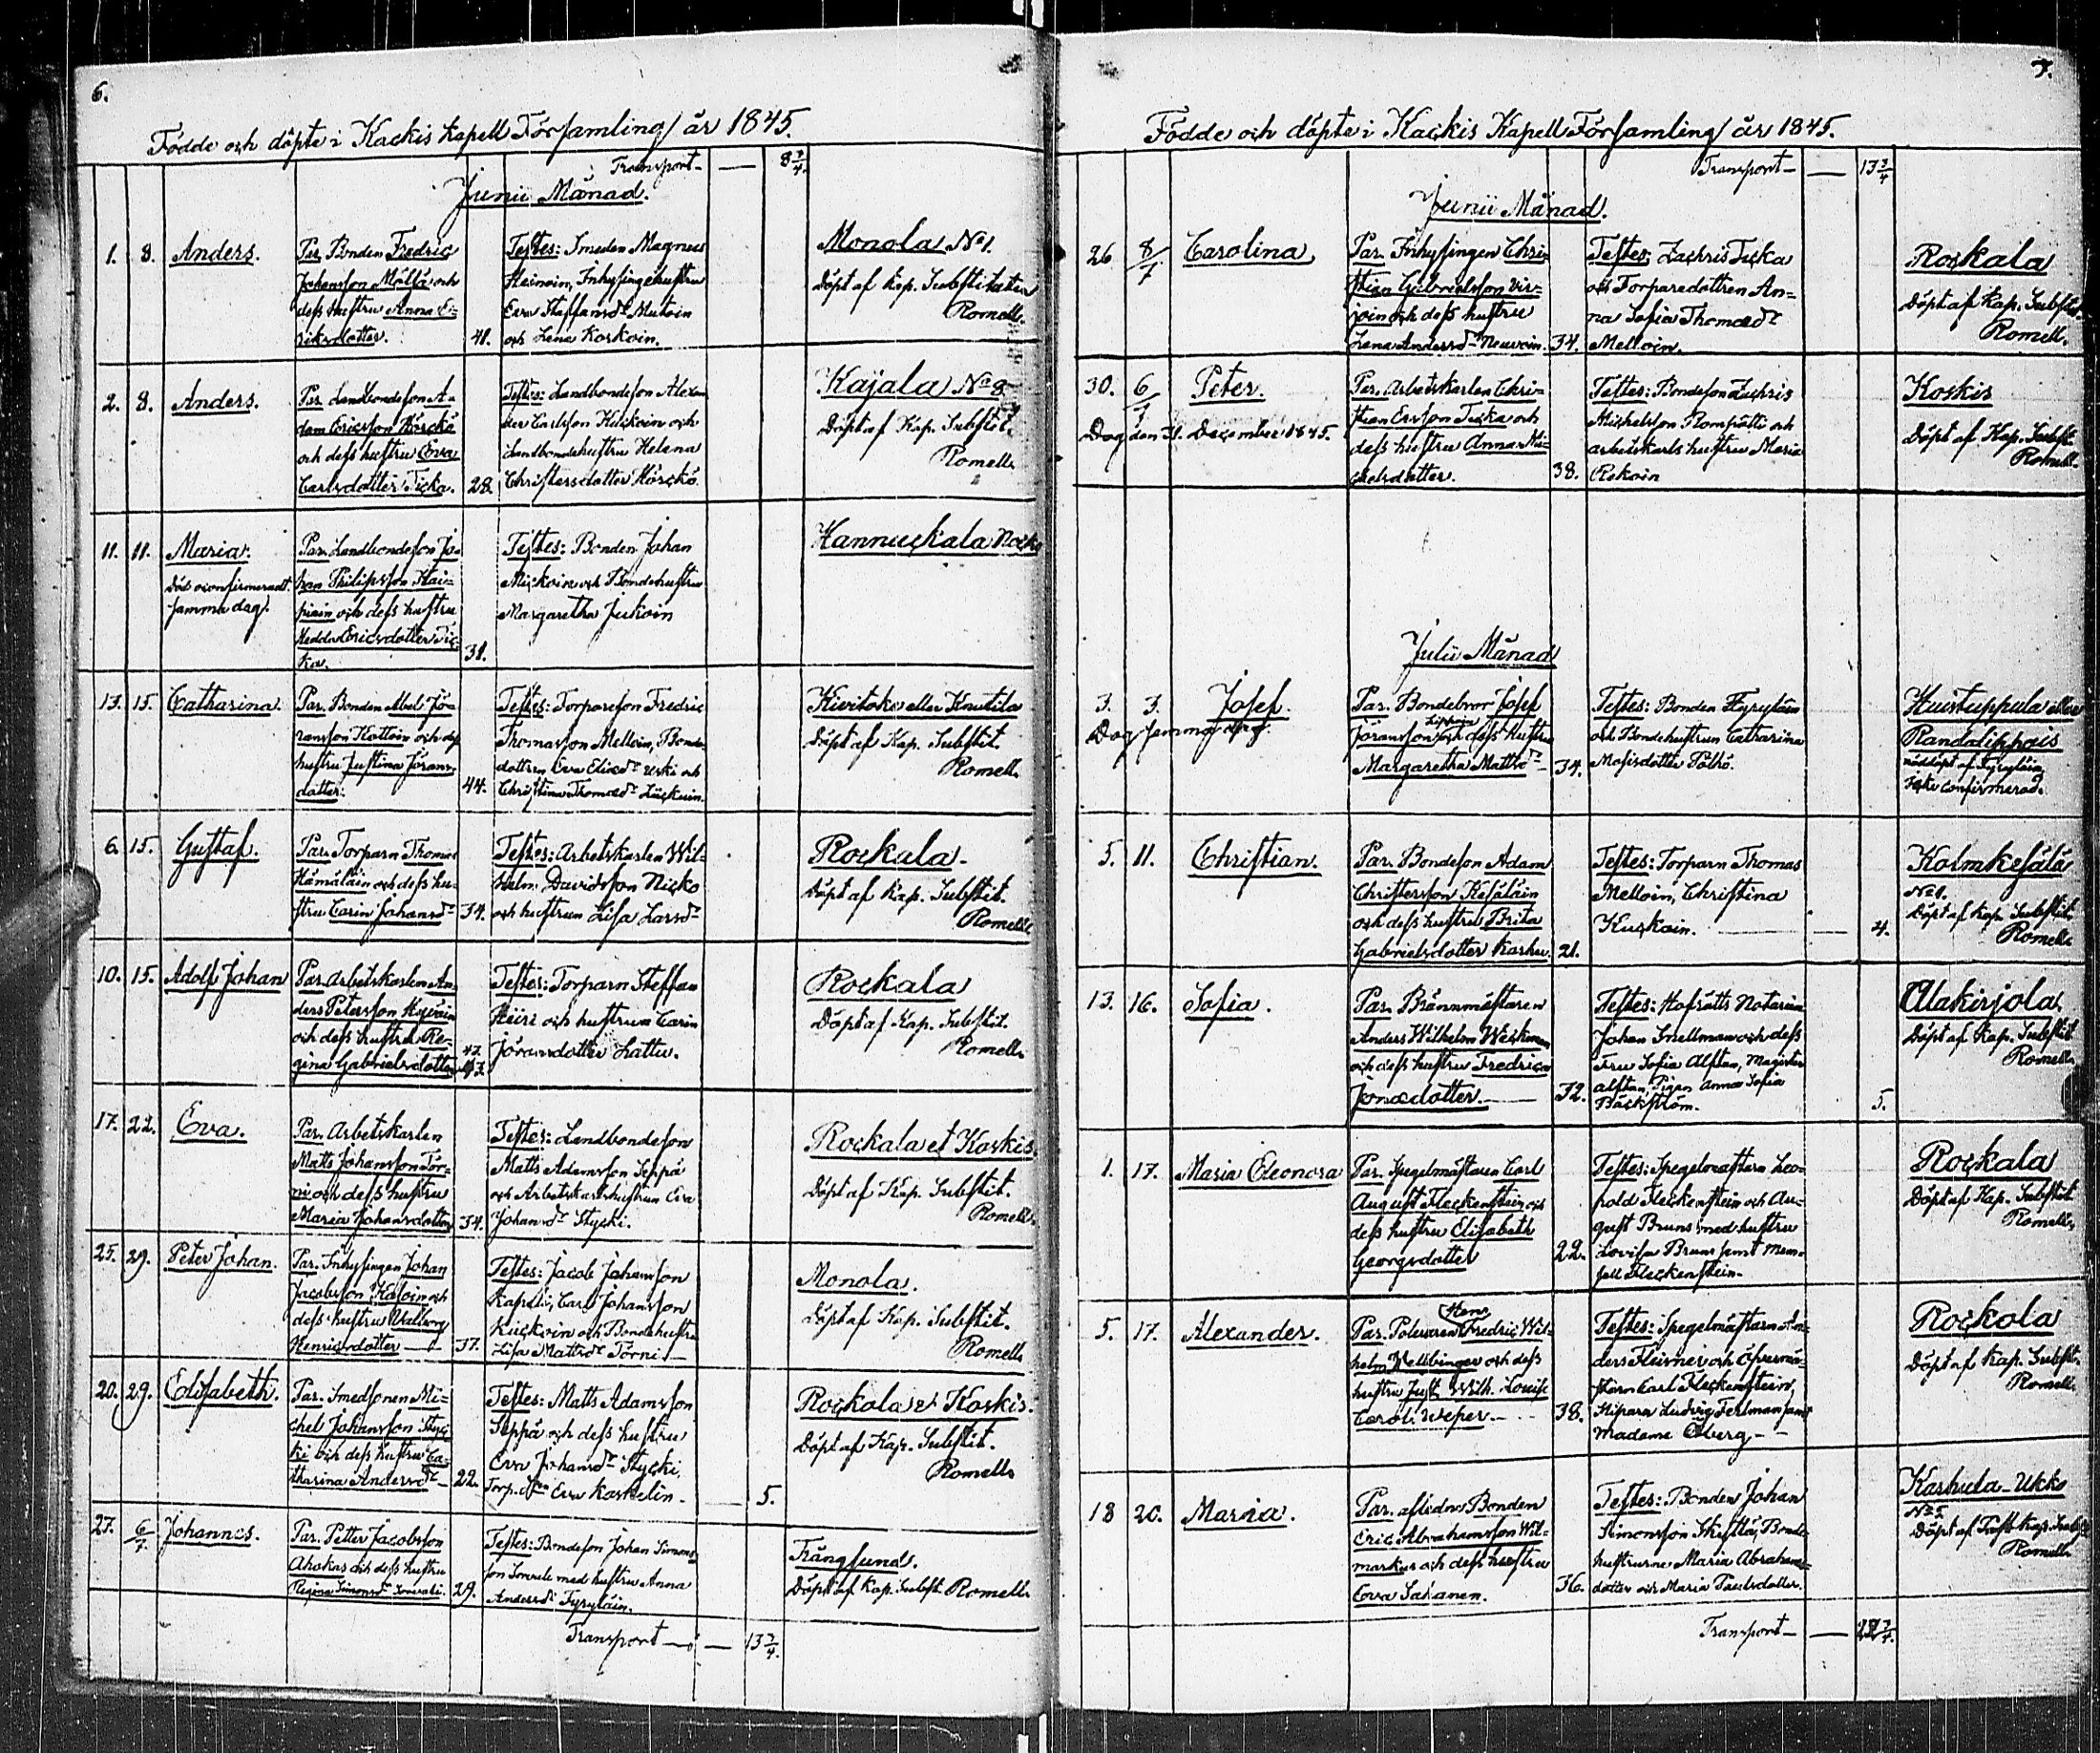 6.
Födde och döpte i Kackis kapell Församling år 1845.
Transport — 8 3/4.
Junii Månad.
1. 8. Anders.
Par. Bonden Fredric
Johansson Mälkä och
dess hustru Anna E-
riksdotter. 41.
Testes: Smeden Magnus
Heinoin, Inhysingehustru
Eva Staffansdr Mutoin
och Lena Koskoin.
Monola No 1.
Döpt af Kap. Substituten
Romell.
2. 8. Anders.
Par. Landbondeson A-
dam Ericsson Hörckö
och dess hustru Eva
Carlsdotter Ticka. 28.
Testes: Landbondeson Alexan
der Carlsson Kuckoin och
Landbondehustru Helena
Christersdotter Hörckö.
Kajala No 8
Döpt af Kap. Substit.
Romell.
11. 11. Maria.
Död oconfirmerad
samma dag.
Par. Landbondeson Jo-
han Philipsson Kai-
piain och dess hustru
Hedda Ericsdotter Tic-
ka. 31.
Testes: Bonden Johan
Mickoin och Bondehustru
Margaretha Jukoin
Hannuckala
13. 15. Catharina.
Par. Bonden Abel Jö-
ransson Kottoin och dess
hustru Justina Jörans-
dotter. 44.
Testes: Torpareson Fredric
Thomasson Melloin, Bonde-
dottren Eva Eliasdr Uski och
Christina Thomasdr Läckoin.
Kivitoko eller Knutila
Döpt af Kap. Substit.
Romell.
6. 15. Gustaf.
Par. Torparn Thomas
Hämäläin och dess hu-
stru Carin Johansdr 34.
Testes: Arbetskarlen Wil-
helm Davidsson Nicko
och hustrun Lisa Larsdr
Rockala.
Döpt af Kap. Substit.
Romell.
10. 15. Adolf Johan
Par. Arbetskarlen An-
ders Petersson Hyväin
och dess hustru Re-
gina Gabrielsdotter 43.
Testes: Torparn Steffan
Hiiri och hustrun Carin
Jöransdotter Lattu.
Rockala
Döpt af Kap. Substit.
Romell.
17. 22. Eva.
Par. Arbetskarlen
Matts Johansson Tör-
ni och dess hustru
Maria Johansdotter 34.
Testes: Landbondeson
Matts Adamsson Seppä
och Arbetskarlshustrun Eva
Johansdr Stycki.
Rockala et Koskis.
Döpt af Kap. Substit.
Romell.
25. 29. Peter Johan.
Par. Inhysingen Johan
Jacobsson Käioin och
dess hustru Walborg
Henricsdotter — 37.
Testes: Jacob Johansson
Kapolin, Carl Johansson
Kuckoin och Bondehustru
Lisa Mattsdr Törni. —
Monola.
Döpt af Kap. Substit.
Romell.
20. 29. Elisabeth.
Par. Smedsonen Mi-
chel Johansson Styc-
ki och dess hustru Ca-
tharina Andersdr — 22.
Testes: Matts Adamsson
Seppä och dess hustru
Eva Johansdr Stycki,
Torp. Eva Karhelin. — 5.
Rockala et Koskis.
Döpt af Kap. Substit.
Romell.
27. 6/7. Johannes.
Par. Petter Jacobsson
Ahokas och dess hustru
Regina Simonsdr 29.
Testes: Bondeson Johan Simons-
son med hustru Anna
Andersdr Tyryläin.
Trångsund.
Döpt af Kap. Substit. Romell.
Transport — — 13 3/4.
7.
Födde och döpte i Kackis Kapell Församling år 1845.
Transport — — 13 3/4
Junii Månad.
26 8/7 Carolina
Par. Inhysingen Chris-
tian Gabrielsson Vir-
join och dess hustru
Lena Andersdr Neuvoin. 34.
Testes: Zachris Ticka
och Torparedottren An-
na Sofia Thomasdr
Melloin.
Rockala
Döpt af Kap. Substit.
Romell.
30. 6/7 Peter.
Dog den 31. December 1845.
Par. Arbetskarlen Chri-
stian Ersson Ticka och
dess hustru Anna Mi-
chelsdotter. 38.
Testes: Bondeson Zachris
Michelsson Rompötti och
arbetskarls hustru Maria
Rekoin
Koskis
Döpt af Kap. Substit.
Romell.
Julii Månad
3. 3. Josef.
Dog samma dag.
Par. Bondebror Josef
Jöransson och dess hustru
Margaretha Mattsdr — 34.
Testes: Bonden Tyryläin
och Bondehustrun Catharina
Mosisdotter Pölhö.
Huistuppula eller
Randalippois
nöddöpt af Tyryläin
Icke confirmerad.
5. 11. Christian.
Par. Bondeson Adam
Christersson Kesäläin
och dess hustru Brita
Gabrielsdotter Karhu. 21.
Testes: Torparn Thomas
Melloin, Christina
Kuckoin. — 4.
Kolmkesälä
No 1.
Döpt af Kap. Substit.
Romell.
13. 16. Sofia.
Par. Brännmästaren
Anders Wilhelm Weckman
och dess hustru Fredrica
Jonasdotter. — 32.
Testes: Hofrätts Notarien
Johan Snellman och dess
Fru Sofia Alftan, Magister
Alftan, Pigan Anna Sofia
Bäckström. 5.
Alakirjola.
Döpt af Kap. Substit.
Romell.
1. 17. Maria Eleonora
Par. Spegelmästaren Carl
August Fleckenstein och
dess hustru Elisabeth
Georgsdotter 22.
Testes: Spegelmästarn Leo-
pold Fleckenstein och Au-
gust Bruns med hustru
Lovisa Bruns samt Mam-
sell Fleckenstein.
Rockala
Döpt af Kap. Substit.
Romell.
5. 17. Alexander.
Par. Poleuren Fredric Wil-
helm Wellbinger och dess
hustru Just. Wilh. Louise
Carol. Weper. — 38.
Testes: Spegelmästarn An-
ders Fleisner och Öfvermä-
starn Carl Fleckenstein,
Slipare Ludvig Tertman samt
Madame Öberg — -
Rockala
Döpt af Kap. Substit.
Romell.
18 20. Maria.
Par. afledne Bonden
Eric Abrahamsson Wil-
markus och dess hustru
Eva Sakanen. 36.
Testes: Bonden Johan
Simonsson Skyttä, Bonde-
hustrurne Maria Abrahams-
dotter och Maria Paulsdotter.
Karhula-Ukko
No 5.
Döpt af Kap. Substit.
Romell.
Transport — —